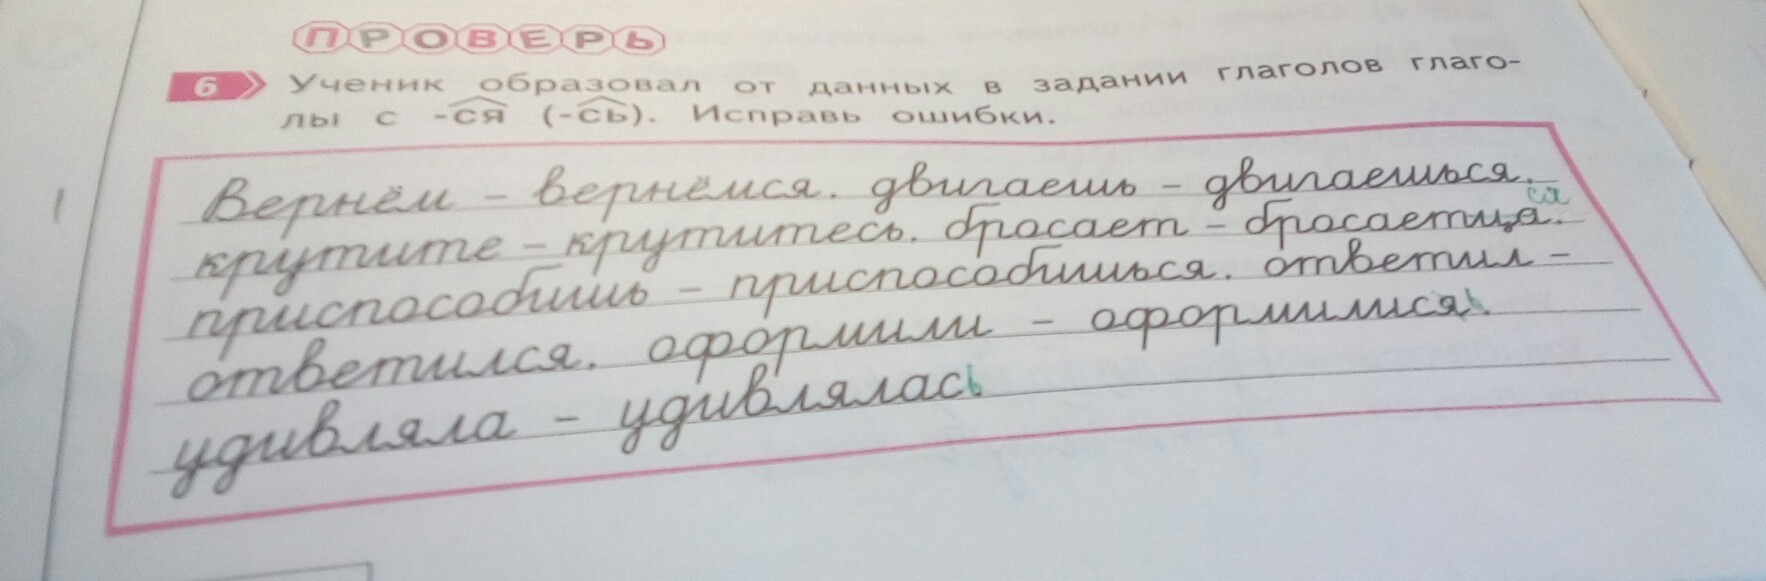 ПРОВЕРЬ
6 Ученик образовал от данных в задании глаголов глаго-
лы с -ся (-сь). Исправь ошибки.
Вернём - вернёмся. двигаешь - двигаешься.
ся
крутите - крутитесь. бросает - бросаетца.
приспособишь - приспособишься. ответил -
ответился. оформили - оформилися.
удивляла - удивлялась